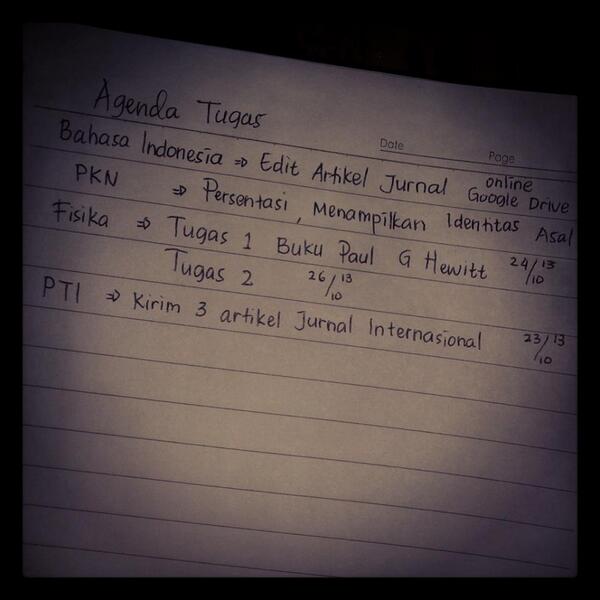 Agenda Tugas
Date Page
Bahasa Indonesia ⇒ Edit Artikel Jurnal online Google Drive
PKN ⇒ Persentasi, Menampilkan Identitas Asal
Fisika ⇒ Tugas 1 Buku Paul G Hewitt 24/10 13
Tugas 2 26/10 13
PTI ⇒ Kirim 3 artikel Jurnal Internasional 23/10 13